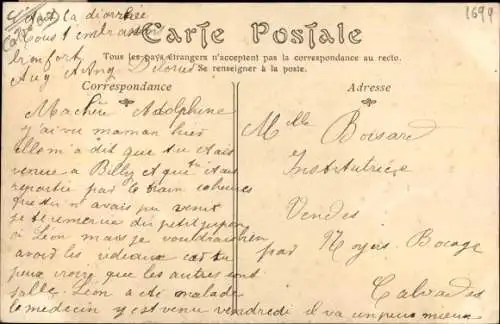 il a la diorrhée
tous t'embrasse
bonfort
Aug
1699
Carte Postale
Tous les pays étrangers n'acceptent pas la correspondance au recto.
Se renseigner à la poste.
Correspondance
Adresse
Ma chère Adolphine
y'ai vu maman hier
elle m'a dit que tu étais
venue a Billy et que étais
repartie par le train
que tu n'avais pu venir
je te remercie du petit jupon
a Léon mais je voudrais bien
avoir les rideaux car tu
peux croire que les autres sont
salle. Léon a été malade
le médecin y est venu vendredi il va un peu mieux
Melle Boisard
Institutrice
Vendes
par Noyers-Bocage
Calvados